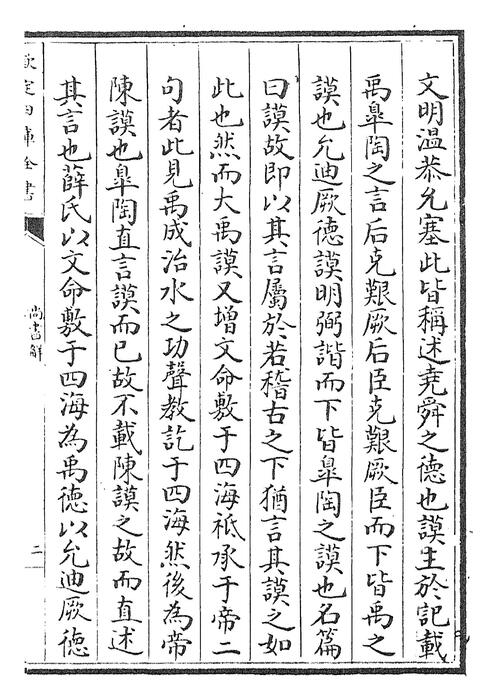 文明温恭允塞此皆稱述堯舜之德也謨主於記載
禹臯陶之言后克艱厥后臣克艱厥臣而下皆禹之
謨也允迪厥德謨明弼諧而下皆臯陶之謨也名篇
曰謨故即以其言屬於若稽古之下猶言其謨之如
此也然而大禹謨又增文命敷于四海祗承于帝二
句者此見禹成治水之功聲教訖于四海然後為帝
陳謨也臯陶直言謨而已故不載陳謨之故而直述
其言也薛氏以文命敷于四海為禹德以允迪厥德
欽定四庫全書
尚書解
二